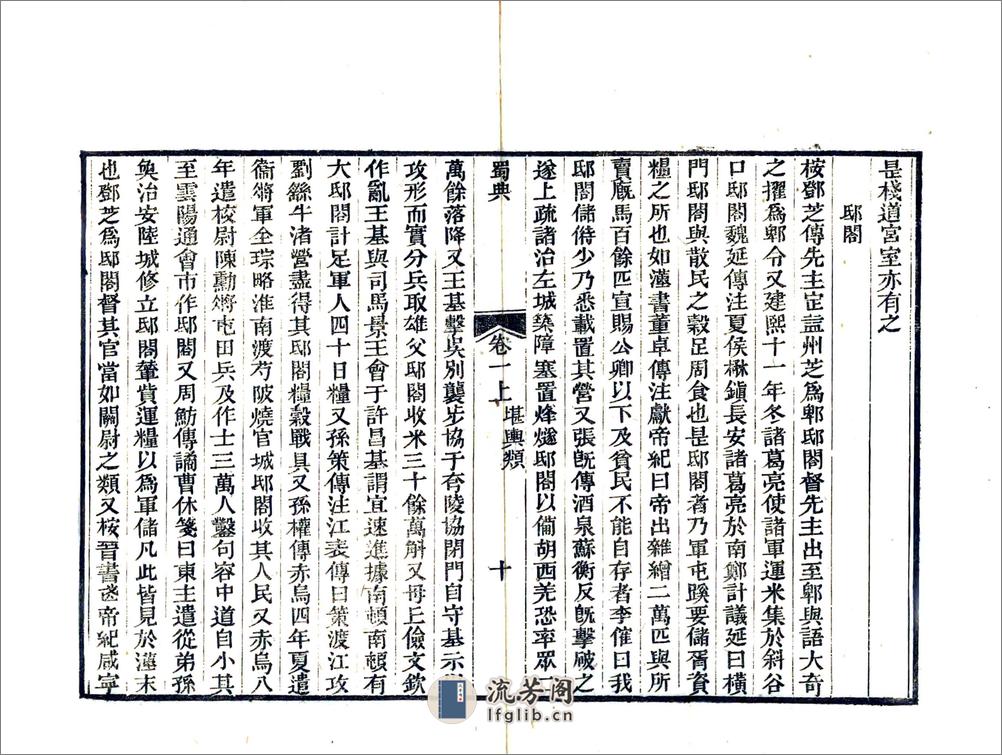 是棧道宮室亦有之
邸閣
桉鄧芝傳先主定益州芝為郫邸閣督先主出至郫與語大奇
之擢為郫令又建熙十一年冬諸葛亮使諸軍運米集於斜谷
口邸閣魏延傳注夏侯楙鎮長安諸葛亮於南鄭計議延曰橫
門邸閣與散民之穀足周食也是邸閣者乃軍屯蹊要儲胥資
糧之所也如漢書董卓傳注獻帝紀曰帝出雜繒二萬匹與所
賣廄馬百餘匹宣賜公卿以下及貧民不能自存者李傕曰我
邸閣儲偫少乃悉載置其營又張旣傳酒泉蘇衡反旣擊破之
遂上疏諸治左城築障塞置烽燧邸閣以僃胡西羌恐率眾二
蜀典
卷一上
堪輿類
十
萬餘落降又王基擊吳別襲步協于夷陵協閉門自守基示以
攻形而實分兵取雄父邸閣收米三十餘萬斛又毋丘儉文欽
作亂王基與司馬景王會于許昌基謂宜速進據南頓南頓有
大邸閣計足軍人四十日糧又孫策傳注江表傳曰策渡江攻
劉繇牛渚營盡得其邸閣糧穀戰具又孫權傳赤烏四年夏遣
衞將軍全琮略淮南渡芍陂燒官城邸閣收其人民又赤烏八
年遣校尉陳勳將屯田兵及作士三萬人鑿句容中道自小其
至雲陽通會市作邸閣又周魴傳譎曹休箋曰東主遣從弟孫
奐治安陸城修立邸閣輦貲運糧以為軍儲凡此皆見於漢末
也鄧芝為邸閣督其官當如關尉之類又桉晉書武帝紀咸寧
流芳阁
lfglib.cn